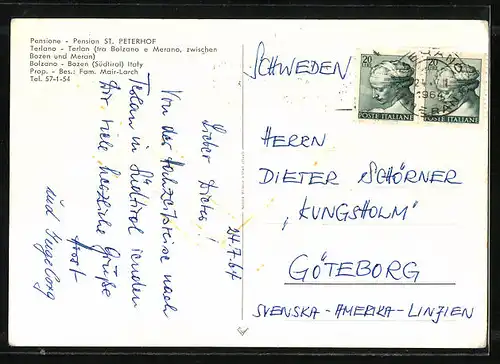 Pensione - Pension ST. PETERHOF
Terlano - Terlan (tra Bolzano e Merano, zwischen
Bozen und Meran)
Bolzano - Bozen (Südtirol) Italy
Prop. - Bes.: Fam. Mair-Larch
Tel. 57-1-54
24.7.64
Lieber Dieter!
Von der Hochzeitsreise nach
Terlan in Südtirol senden
Dir viele herzliche Grüße
Horst
und Ingeborg
SCHWEDEN
20
POSTE ITALIANE
20
POSTE ITALIANE
1964
HERRN
DIETER SCHÖRNER
"KUNGSHOLM"
GÖTEBORG
SVENSKA-AMERIKA-LINJEN